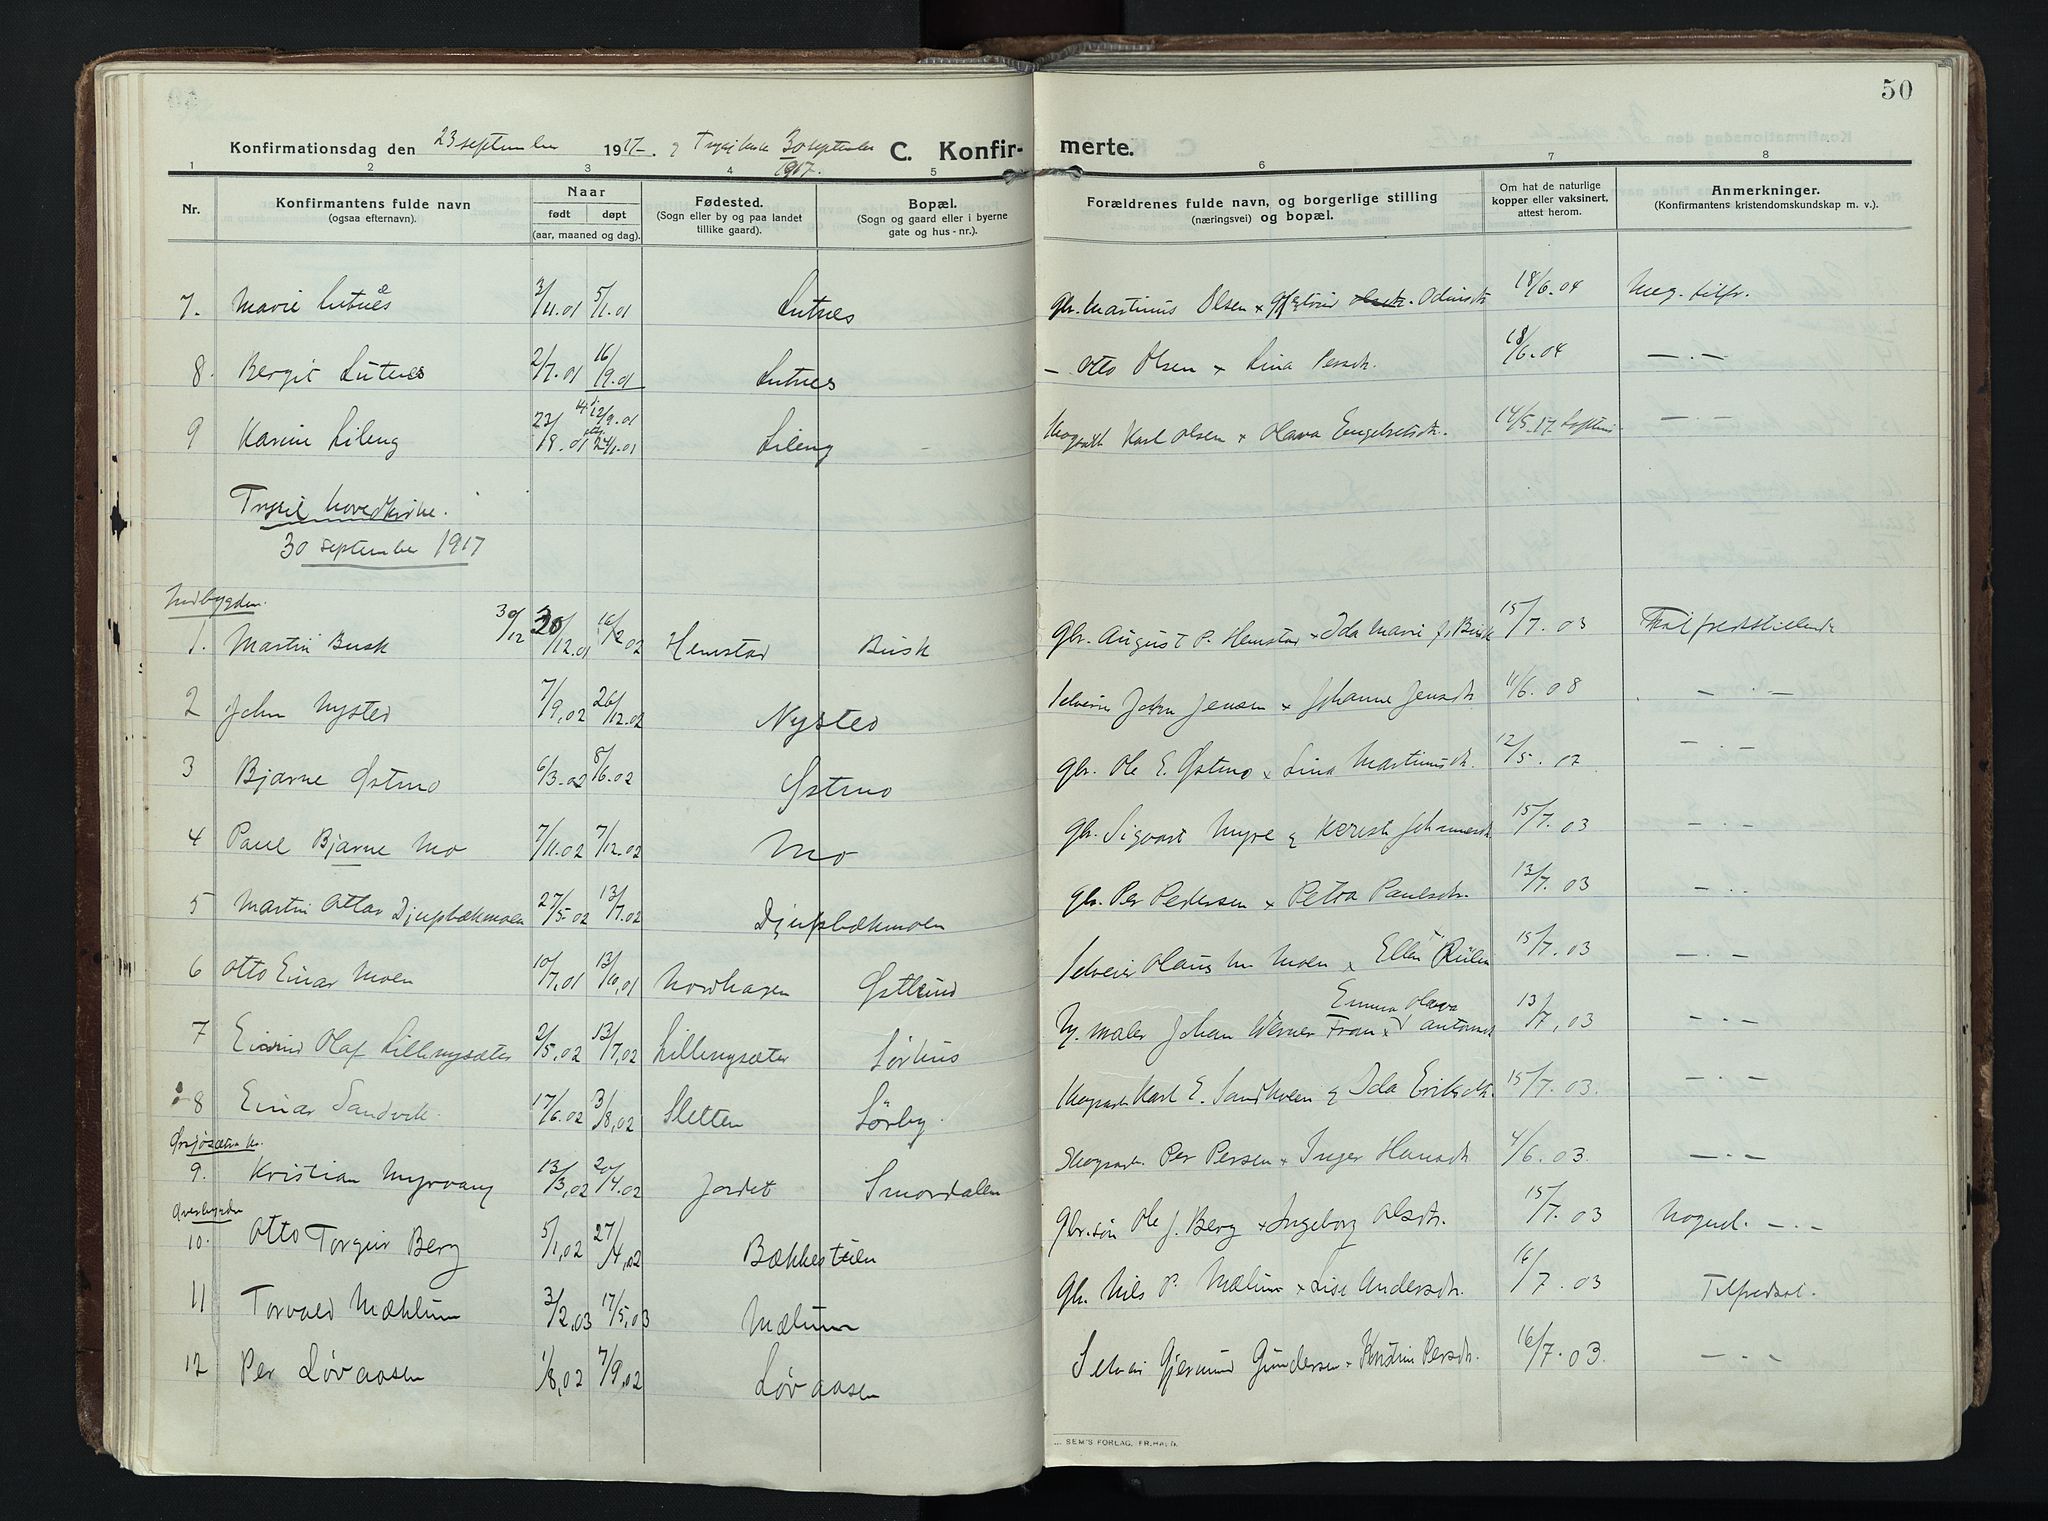 50
Konfirmationsdag den 23 september 1917. 30 september 1917. C. Konfirmerte.
1 2 3 4 5 6 7 8
Nr.
Konfirmantens fulde navn
(ogsaa efternavn).
Naar
født døpt
(aar, maaned og dag).
Fødested.
(Sogn eller by og paa landet
tillike gaard).
Bopæl.
(Sogn og gaard eller i byerne
gate og hus-nr.).
Forældrenes fulde navn, og borgerlige stilling
(næringsvei) og bopæl.
Om hat de naturlige
kopper eller vaksinert,
attest herom.
Anmerkninger.
(Konfirmantens kristendomskundskap m. v.).
7. Marie Lutnes 3/11.01 5/1.01 Lutnes Gbr. Martinus Olsen x Odinsdt. 18/6.04 Meg. tilfr.
8. Bergit Lutnes 2/7.01 16/19.01 Lutnes — Otto Olsen x Lina Persdt. 18/6.04 — . —
9 Karine Lileng 23/8.01 12/9.01 Lileng Karl Olsen x Olava Engebretsdt. 14/5.17 — . —
Trysil hovedkirke.
30 september 1917
Indbygden.
1. Martin Busk 30/12 30/12.01 16/2.02 Hemstad Busk Gbr. August P. Hemstad x Ida Marie J. Busk 15/7.03 Tilfredsstillende
2 John Nysted 7/9.02 26/12.02 Nysted Selveier John Jensen x Johanne Jensdt. 11/6.08 — . —
3 Bjarne Østmo 6/3.02 8/6.02 Østmo Gbr. Ole E. Østmo x Lina Martinusdt. 12/5.02 — . —
4 Paul Bjarne Mo 7/11.02 7/12.02 Mo Gbr. Sigvart Myre & Kjersti Johannesdt. 15/7.03 — . —
5 Martin Ottar Djupbækmoen 27/5.02 13/7.02 Djupbækmoen Gbr. Per Pedersen x Petra Paulsdtr. 13/7.03 — . .
6 Otto Einar Moen 10/7.01 13/10.01 Nordhagen Østlund Selveier Olaus M. Moen x Ellen 15/7.03 — . —
7 Eivind Olaf Lillenysæter 2/5.02 13/7.02 Lillenysæter Sørhus maler Johan Werner From x Emma Olava Antonsdt. 13/7.03 — . —
8 Einar Sandvik 17/6.02 3/8.02 Sletten Sørby. Karl E. Sandkolen & Ida Eriksdt. 15/7.03. — . —
Ørsjøsætra k.
9. Kristian Myrvang 13/3.02 20/4.02 Jordet Smordalen Skogsarb. Per Persen x Inger Hansdt. 4/6.03. — . —
Overbygden
10. Otto Torgeir Berg 5/1.02 27/4.02 Bækkestilen Gbr.søn Ole J. Berg x Ingeborg Olsdtr. 15/7.03 Nogenl. — . —
11 Torvald Mæhlum 3/2.03 17/5.03 Mælum Gbr. Nils P. Mælum x Lise Andersdtr. 16/7.03 Tilfredsst.
12 Per Løvaasen 1/8.02 7/9.02 Løvaasen Selveier Gjermund Gundersen x Kristine Persdtr. 16/7.03. — . —
SEM'S FORLAG, FR.HALD.